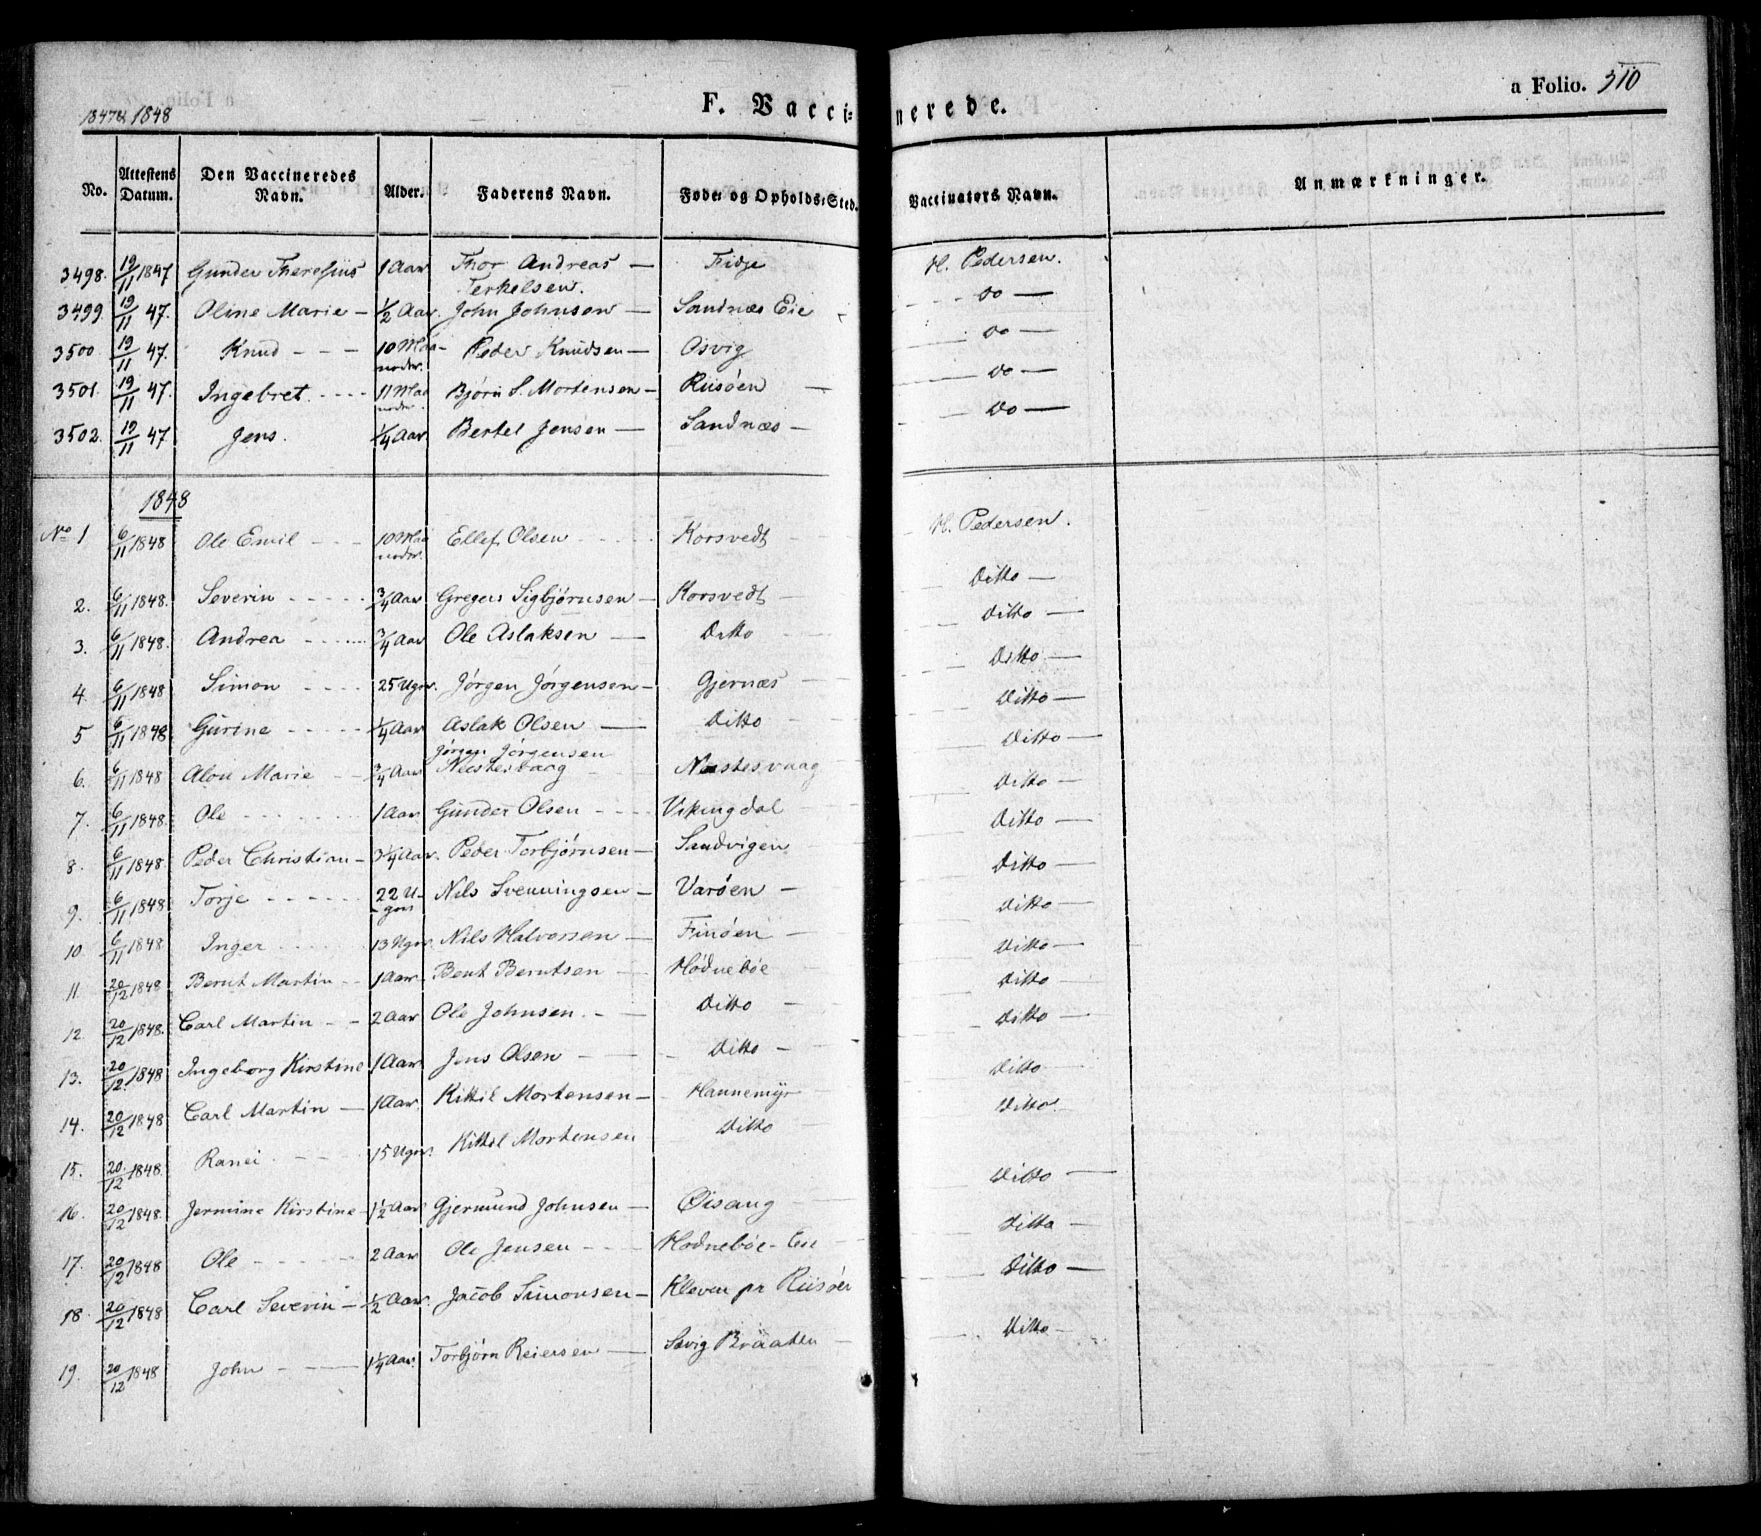 1847 & 1848
F. Vaccinerede.
a Folio. 310
No. Attestens Datum. Den Vaccineredes Navn. Alder. Faderens Navn. Føde- og Opholds-Sted. Vaccinators Navn. Anmærkninger.
3498. 19/11 1847 Gunder 1 Aar Thor Andreas Terkelsen. — H. Pedersen.
3499. 19/11 47. Oline Marie — 1/2 Aar. John Johnsen — Sandnæs Eie — do —
3500 19/11 47. Knud — — — 10 Maa-neder. Peder Knudsen — Osvig — do —
3501. 19/11 47. Ingebret. - - - - 11 Maaneder. Bjørn S. Mortensen — Riisøen — — do —
3502. 19/11 47 Jens. 1/4 Aar Bertel Jensen — Sandnæs — — do —
1848
No 1 6/11 1848 Ole Emil - - - 10 Maaneder. Ellef Olsen - - - - Korsvedt - H. Pedersen.
2. 6/11 1848. Severin - - - - - 3/4 Aar Gregers Sigbjørnsen — Korsvedt — Ditto —
3. 6/11 1848. Andrea - - - - - 3/4 Aar Ole Aslaksen — Ditto — Ditto —
4. 6/11 1848 Simon - - - - 25 Uger. Jørgen Jørgensen — Gjernæs — Ditto —
5 6/11 1848 Gurine - - - - - 1/4 Aar Aslak Olsen — Ditto — Ditto —
6. 6/11 1848 Alou Marie - - 3/4 Aar Jørgen Jørgensen Næstesvaag - Næstesvaag — Ditto —
7. 6/11 1848. Ole - - - - - - 1 Aar Gunder Olsen - - - - Vikingdal — Ditto —
8. 6/11 1848 Peder Christian — 3 1/4 Aar. Peder Torbjørnsen — Sandvigen — Ditto —
9. 6/11 1848. Torje - - - - - 22 U-ger Nils Svenningsen — Varøen — Ditto —
10. 6/11 1848 Inger - - - - - 13 Uger. Nils Halvorsen — Finøen — Ditto —
11. 20/12 1848 Bernt Martin - - 1 Aar Bent Berntsen — Hødnebøe — Ditto —
12. 20/12 1848. Carl Martin - - 2 Aar Ole Johnsen. - — Ditto — Ditto —
13. 20/12 1848 Ingeborg Kirstine 1 Aar Jens Olsen - — Ditto — Ditto —
14. 20/12 1848 Carl Martin — 1 Aar Kittil Mortensen — Hannemyr Ditto
15. 20/12 1848. Ranei - - - - 15 Uger. Kittil Mortensen Ditto — Ditto —
16. 20/12 1848. Jermine Kirstine — 1 1/2 Aar Gjermund Johnsen — Øisang Ditto —
17. 20/12 1848 Ole - - - - 2 Aar Ole Jensen - - - Hødnebøe - Eie Ditto —
18. 20/12 1848 Carl Severin — 1/2 Aar. Jacob Simonsen — Kleven pr Riisøer Ditto —
19. 20/12 1848 John - - — 1 1/4 Aar. Torbjørn Reiersen — Braaten —